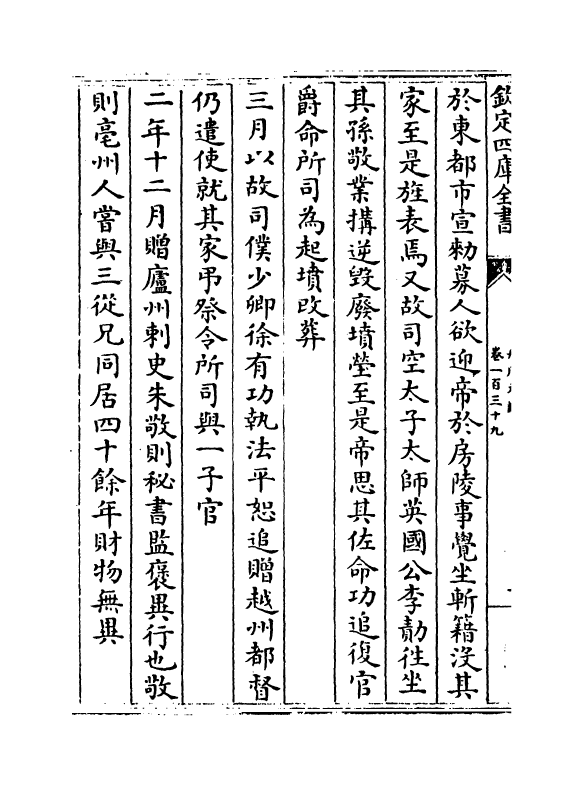 欽定四庫全書
卷一百三十九
於東都市宣勑募人欲迎帝於房陵事覺坐斬籍没其
家至是旌表焉又故司空太子太師英國公李勣徃坐
其孫敬業搆逆毀廢墳塋至是帝思其佐命功追復官
爵命所司為起墳改葬
三月以故司僕少卿徐有功執法平恕追贈越州都督
仍遣使就其家弔祭令所司與一子官
二年十二月贈廬州刺史朱敬則秘書監褒異行也敬
則亳州人嘗與三從兄同居四十餘年財物無異